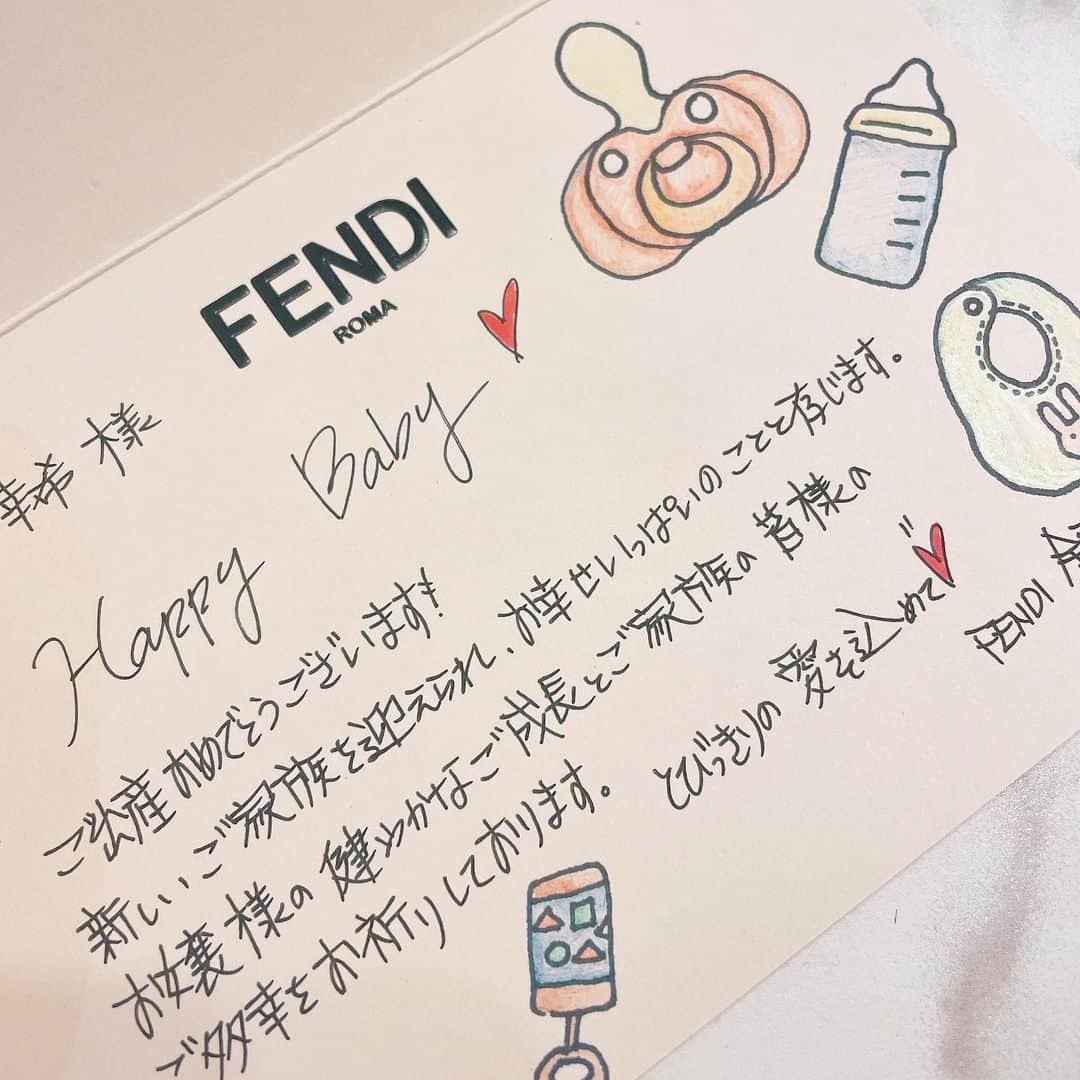 FENDI
ROMA
幸希 様
Happy Baby
ご出産おめでとうございます!
新しいご家族を迎えられ、お幸せいっぱいのことと存じます。
お嬢様の健やかなご成長とご家族の皆様の
ご多幸をお祈りしております。
とびっきりの愛を込めて
FENDI